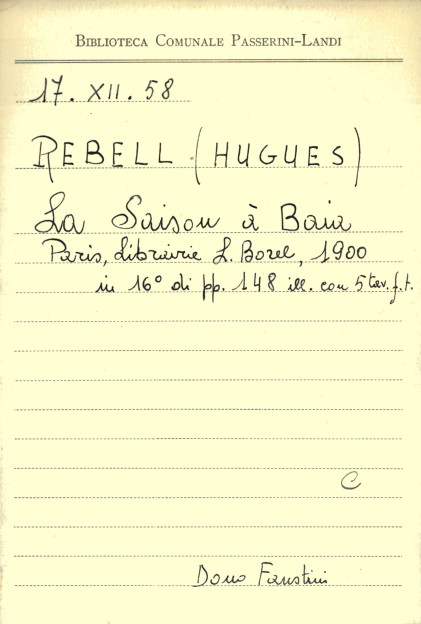 BIBLIOTECA COMUNALE PASSERINI-LANDI
17. XII. 58
REBELL (HUGUES)
La Saison à Baia
Paris, Librairie L. Borel, 1900
in 16° di pp. 148 ill. con 5 tav. f. t.
C
Dono Faustini